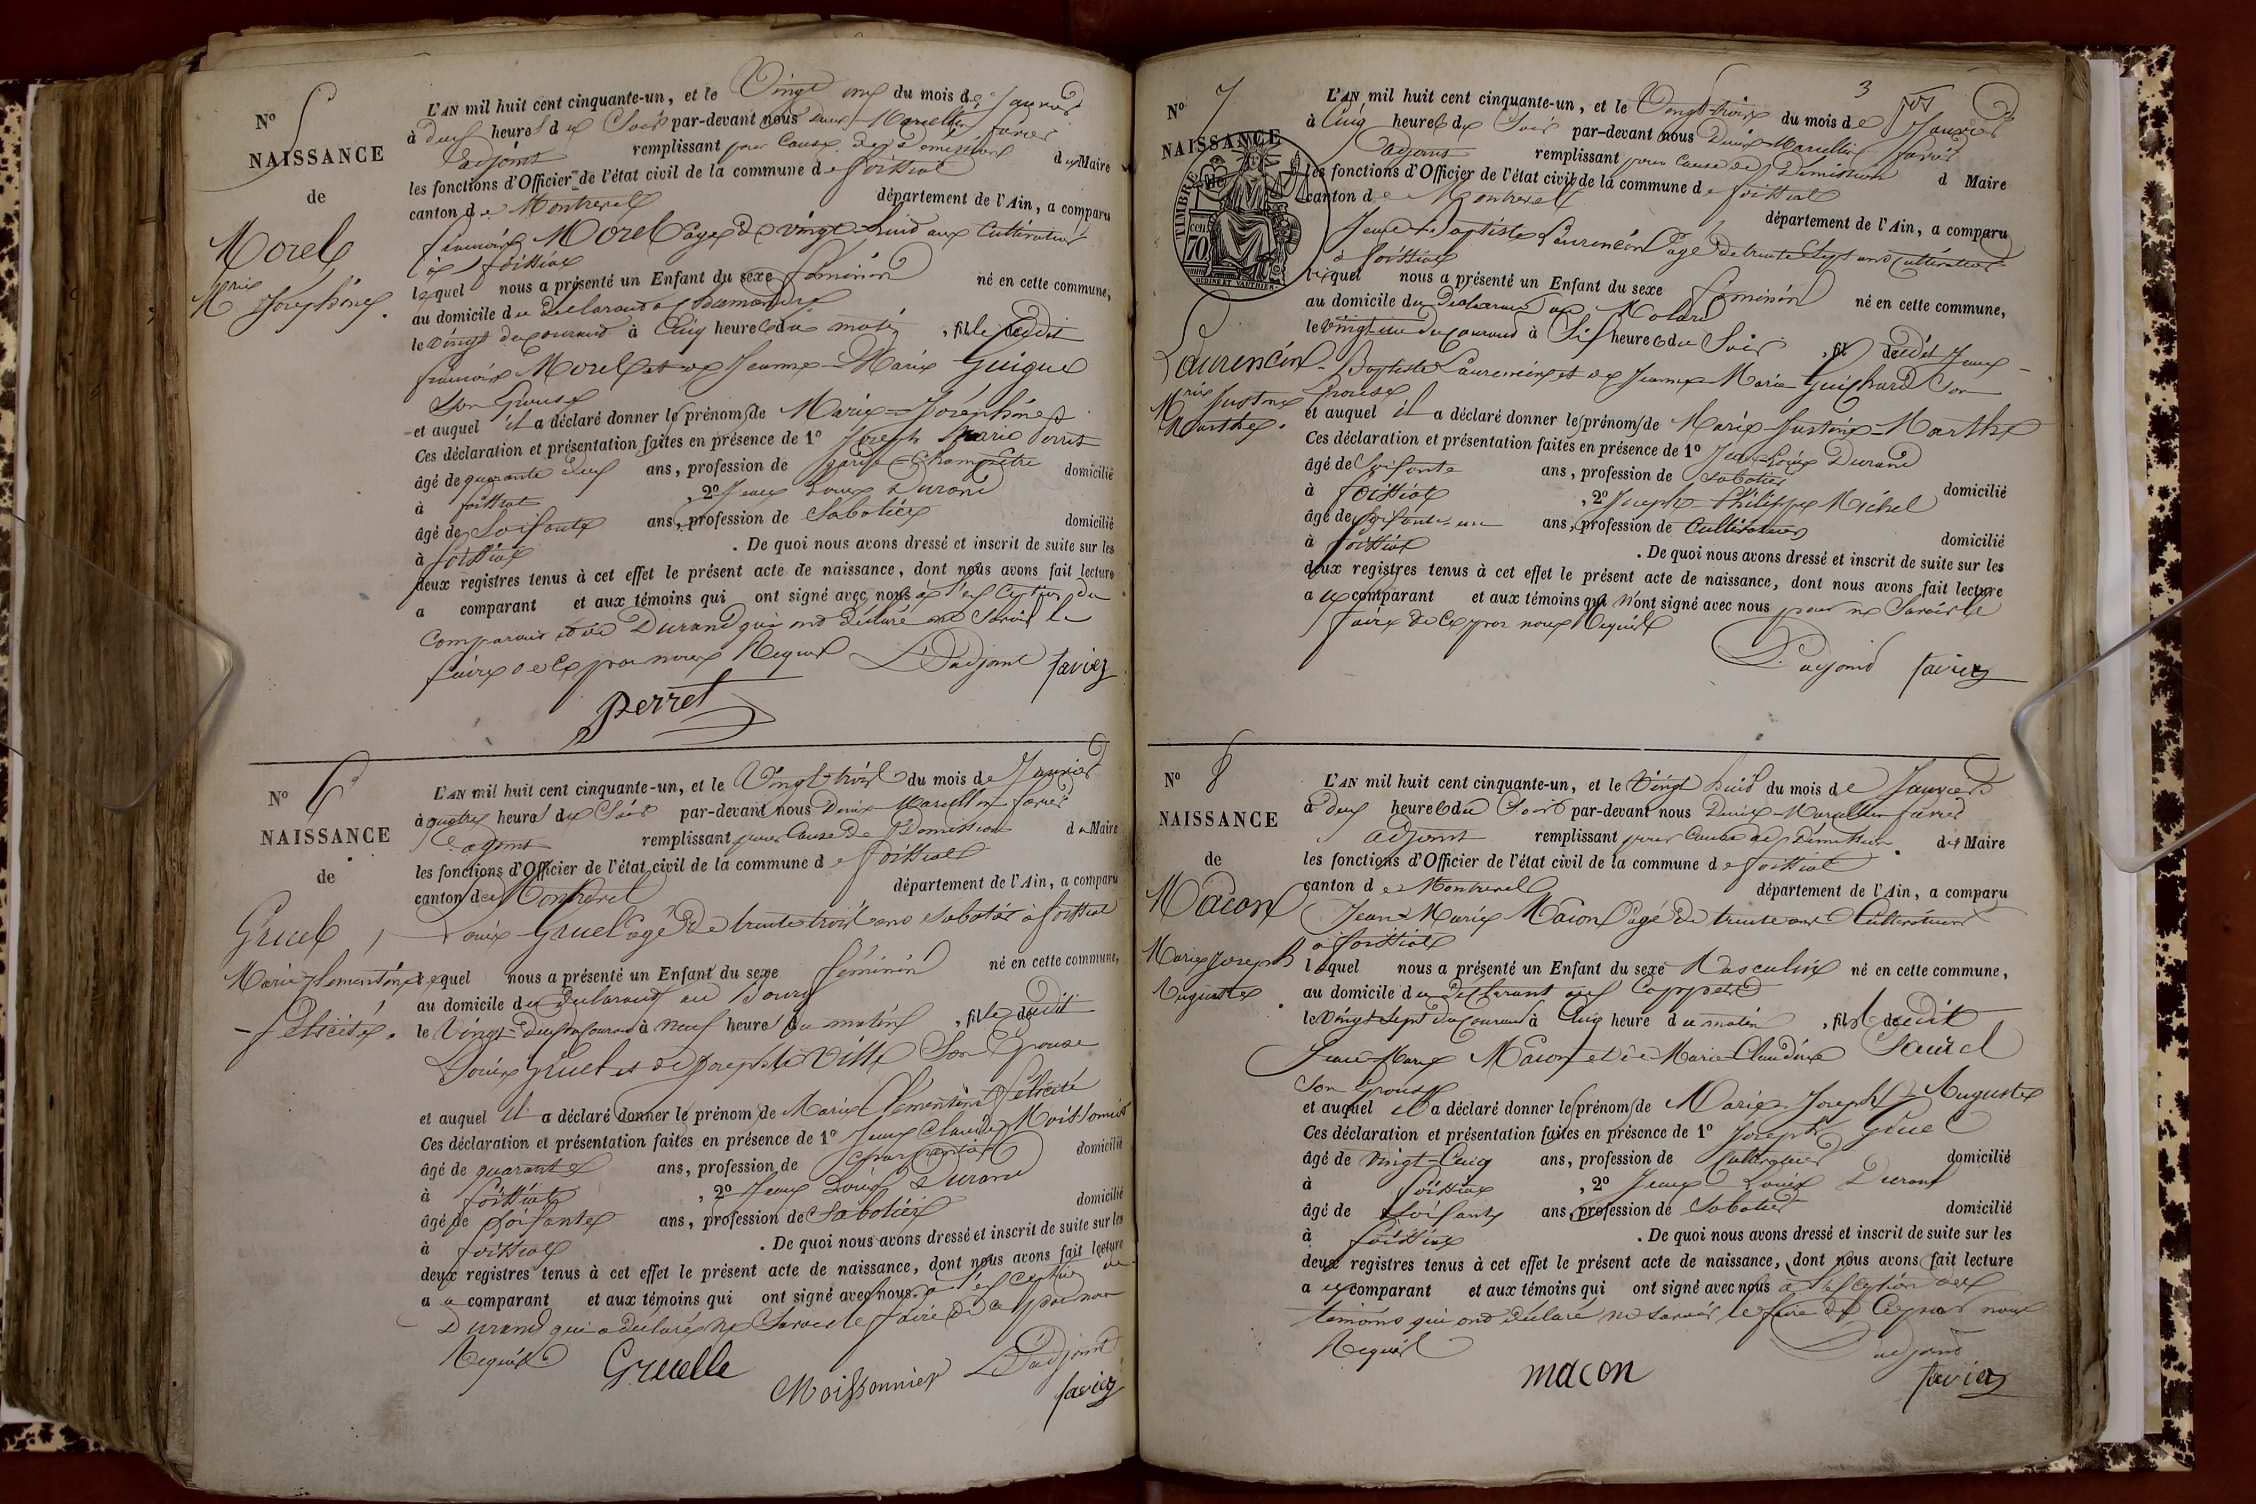 N° 5
NAISSANCE
de
Morel
Marie Joséphine.
L'AN mil huit cent cinquante-un, et le Vingt un du mois de Janvier
à deux heures du Soir par-devant nous Denis Marcellin favier
L'adjoint remplissant pour Cause de démission du Maire
les fonctions d'Officier de l'état civil de la commune de foissiat
canton de Montrevel département de l'Ain, a comparu
françois Morel agé de vingt-huit ans Cultivateur
à foissiat
lequel nous a présenté un Enfant du sexe féminin né en cette commune,
au domicile du déclarant
le Vingt du courant à Cinq heures du matin, fille dudit
françois Morel et de Jeanne-Marie Guigue
Son Epouse
et auquel il a déclaré donner les prénoms de Marie-Joséphine
Ces déclaration et présentation faites en présence de 1° Joseph Marie Perret
âgé de quarante deux ans, profession de garde-Champêtre domicilié
à foissiat, 2° Jean Louis Durand
âgé de Soixante ans, profession de Sabotier domicilié
à foissiat. De quoi nous avons dressé et inscrit de suite sur les
deux registres tenus à cet effet le présent acte de naissance, dont nous avons fait lecture
a comparant et aux témoins qui ont signé avec nous à l'exception du
Comparant et de Durand qui ont déclaré ne Savoir le
faire de ce par nous Requis L'adjoint favier
Perret
N° 6
NAISSANCE
de
Gruel
Marie Clémentine
félicité.
L'AN mil huit cent cinquante-un, et le Vingt-trois du mois de Janvier
à quatre heures du Soir par-devant nous Denis Marcellin favier
L'adjoint remplissant pour Cause de Démission du Maire
les fonctions d'Officier de l'état civil de la commune de foissiat
canton de Montrevel département de l'Ain, a comparu
Louis Gruel agé de trente trois ans Sabotier à foissiat
lequel nous a présenté un Enfant du sexe féminin né en cette commune,
au domicile du déclarant au Bourg
le Vingt-Deux du Courant à neuf heures du matin, fille dudit
Louis Gruel et de Josephte Ville Son Epouse
et auquel il a déclaré donner le prénom de Marie Clémentine félicité
Ces déclaration et présentation faites en présence de 1° Jean Claude Moissonnier
âgé de quarante ans, profession de charpentier domicilié
à foissiat, 2° Jean Louis Durand
âgé de Soixante ans, profession de Sabotier domicilié
à foissiat. De quoi nous avons dressé et inscrit de suite sur les
deux registres tenus à cet effet le présent acte de naissance, dont nous avons fait lecture
a u comparant et aux témoins qui ont signé avec nous à l'exception de
Durand qui a déclaré ne Savoir le faire de ce par nous
Requis Gruelle Moissonnier L'adjoint
favier
3
N° 7
NAISSANCE
TIMBRE
70 cen
OUDINET VAUTHIER
Laurencin
Marie Justine
Marthe.
L'AN mil huit cent cinquante-un, et le Vingt-trois du mois de Janvier
à Cinq heures du Soir par-devant nous Denis Marcellin favier
L'adjoint remplissant pour Cause de Démission d Maire
les fonctions d'Officier de l'état civil de la commune de foissiat
canton de Montrevel département de l'Ain, a comparu
Jean-Baptiste Laurencin agé de trente Sept ans Cultivateur
à foissiat
lequel nous a présenté un Enfant du sexe féminin né en cette commune,
au domicile du déclarant au Molard
le Vingt-un du courant à Six heures du Soir, fil dudit Jean-
Baptiste Laurencin et de Jeanne-Marie Guichard Son
Epouse
et auquel il a déclaré donner les prénoms de Marie-Justine-Marthe
Ces déclaration et présentation faites en présence de 1° Jean-Louis Durand
âgé de Soixante ans, profession de Sabotier domicilié
à foissiat, 2° Joseph-Philippe Michel
âgé de Soixante-un ans, profession de Cultivateur domicilié
à foissiat. De quoi nous avons dressé et inscrit de suite sur les
deux registres tenus à cet effet le présent acte de naissance, dont nous avons fait lecture
a u comparant et aux témoins qui n'ont signé avec nous pour ne Savoir le
faire de Ce par nous Requis
L'adjoint favier
N° 8
NAISSANCE
de
Macon
Marie Joseph
Auguste.
L'AN mil huit cent cinquante-un, et le Vingt huit du mois de Janvier
à deux heures du Soir par-devant nous Denis-Marcellin favier
adjoint remplissant pour Cause de Démission du Maire
les fonctions d'Officier de l'état civil de la commune de foissiat
canton de Montrevel département de l'Ain, a comparu
Jean-Marie Macon agé de trente ans Cultivateur
à foissiat
lequel nous a présenté un Enfant du sexe Masculin né en cette commune,
au domicile du déclarant
le Vingt-Sept du Courant à Cinq heure du matin, fils dudit
Jean-Marie Macon et de Marie-Claudine
Son Epouse
et auquel il a déclaré donner les prénoms de Marie-Joseph-Auguste
Ces déclaration et présentation faites en présence de 1° Joseph Gruel
âgé de Vingt-Cinq ans, profession de Cultivateur domicilié
à foissiat, 2° Jean-Louis Durand
âgé de Soixante ans, profession de Sabotier domicilié
à foissiat. De quoi nous avons dressé et inscrit de suite sur les
deux registres tenus à cet effet le présent acte de naissance, dont nous avons fait lecture
a u comparant et aux témoins qui ont signé avec nous à l'exception des
témoins qui ont déclaré ne Savoir le faire de Ce par nous
Requis L'adjoint
macon favier